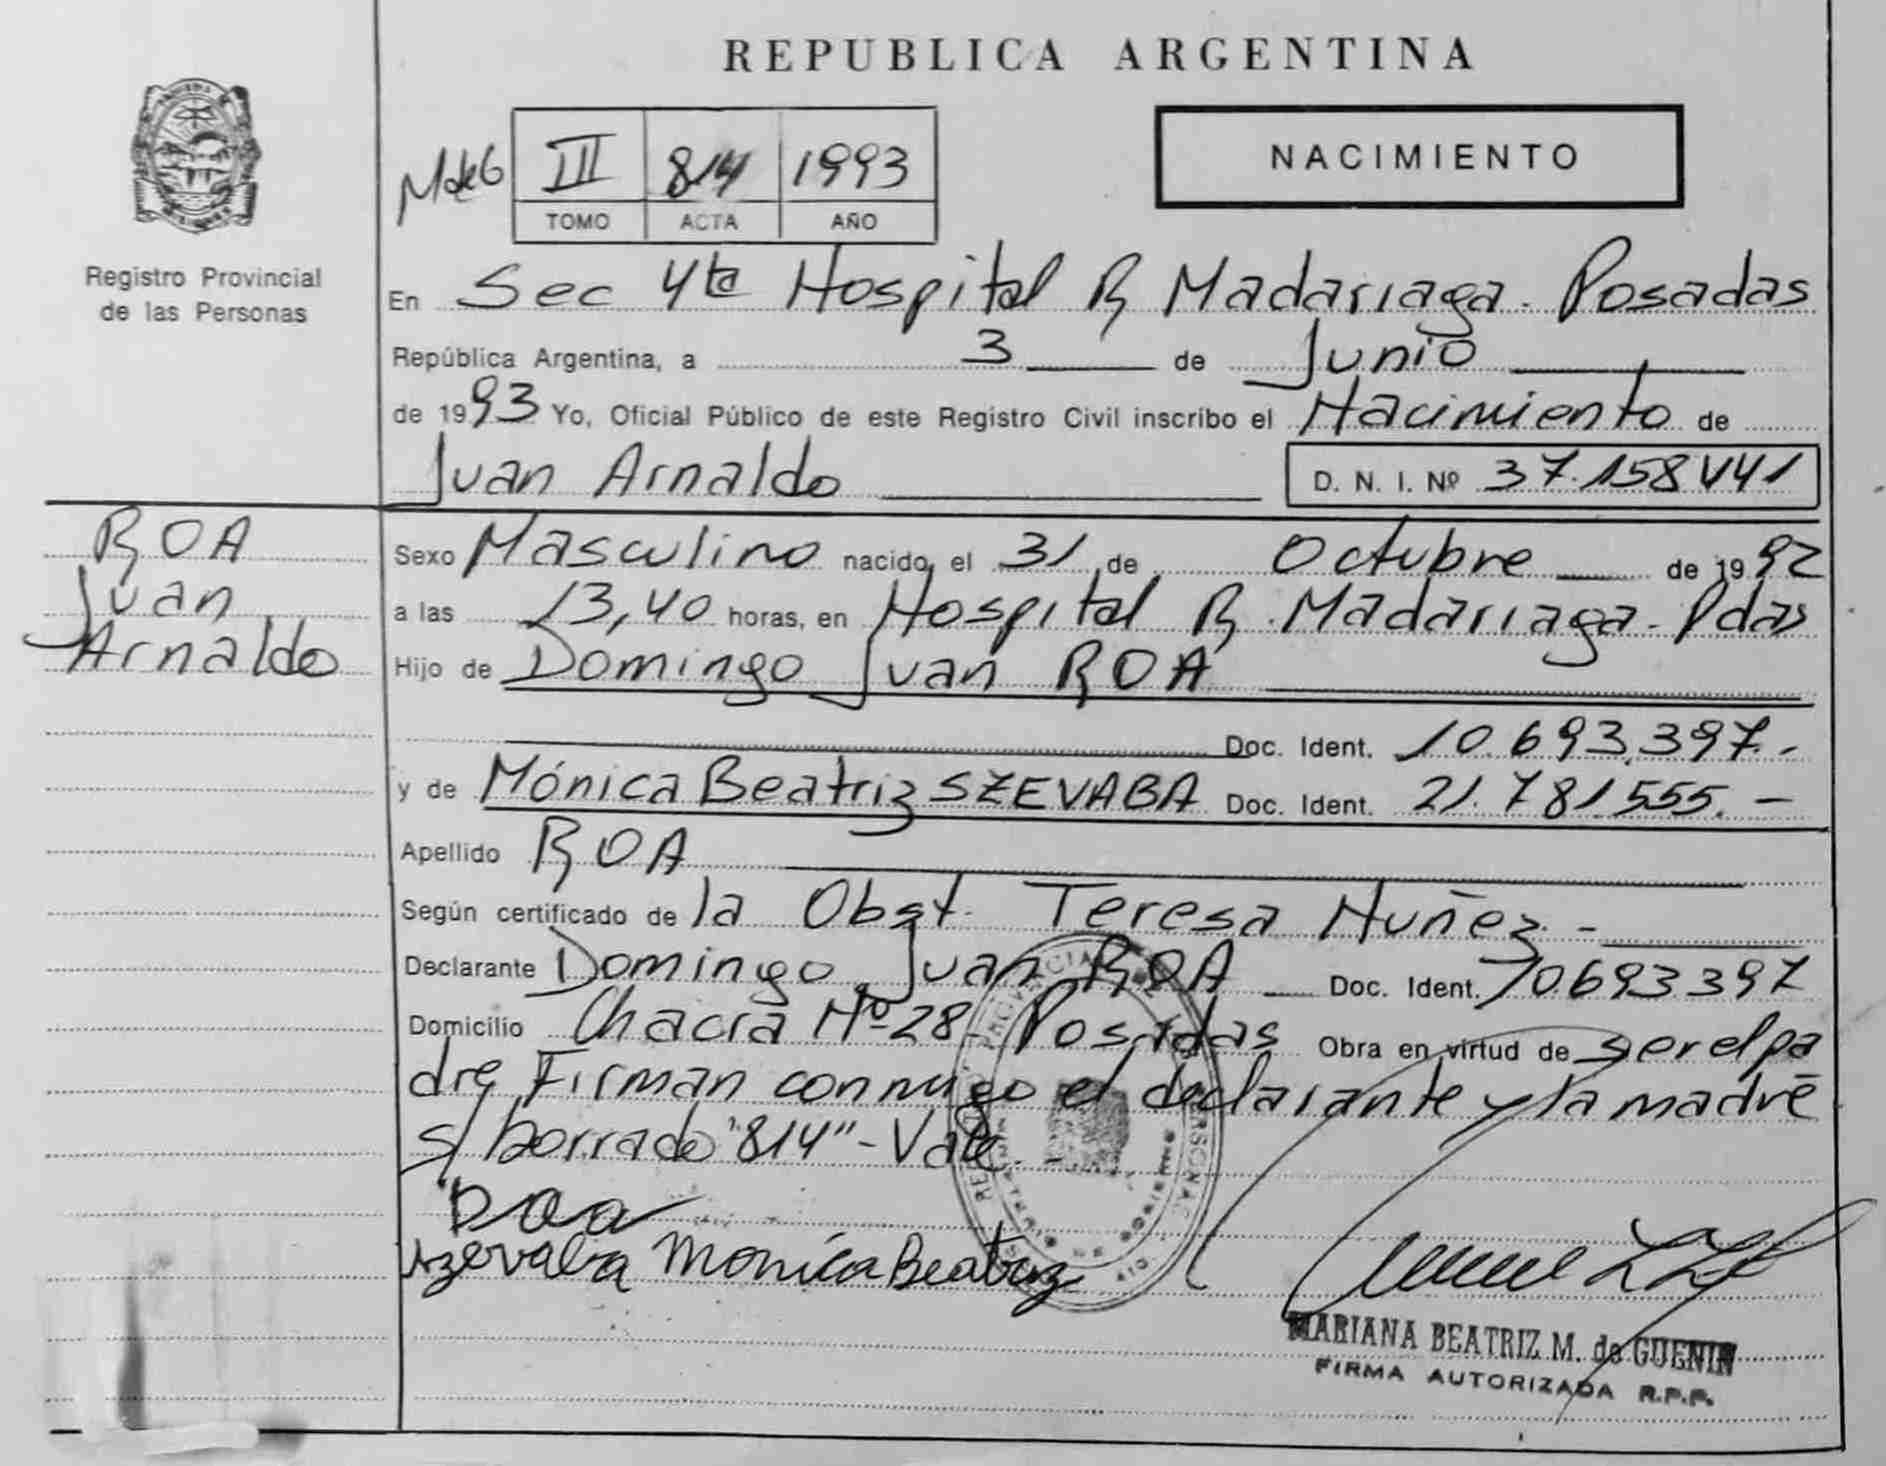 REPUBLICA ARGENTINA
Registro Provincial
de las Personas
MdeG
III 814 1993
TOMO ACTA AÑO
NACIMIENTO
En Sec 4ta Hospital R Madariaga. Posadas
República Argentina, a 3 de Junio
de 1993 Yo, Oficial Público de este Registro Civil inscribo el Nacimiento de
Juan Arnaldo D. N. I. Nº 37.158441
ROA
Juan
Arnaldo
Sexo Masculino nacido el 31 de Octubre de 1992
a las 13,40 horas, en Hospital R. Madariaga. Pdas
Hijo de Domingo Juan ROA
Doc. Ident. 10.693.397.-
y de Mónica Beatriz SZEVABA Doc. Ident. 21.781.555.-
Apellido ROA
Según certificado de la Obst. Teresa Nuñez.-
Declarante Domingo Juan ROA Doc. Ident. 10.693.397
Domicilio Chacra Nº 28 Posadas Obra en virtud de ser el pa
dre Firman conmigo el declarante y la madre
s/ borrado "814" - Vale.
Roa
Szevaba Monica Beatriz
MARIANA BEATRIZ M. de GUENIN
FIRMA AUTORIZADA R.P.P.